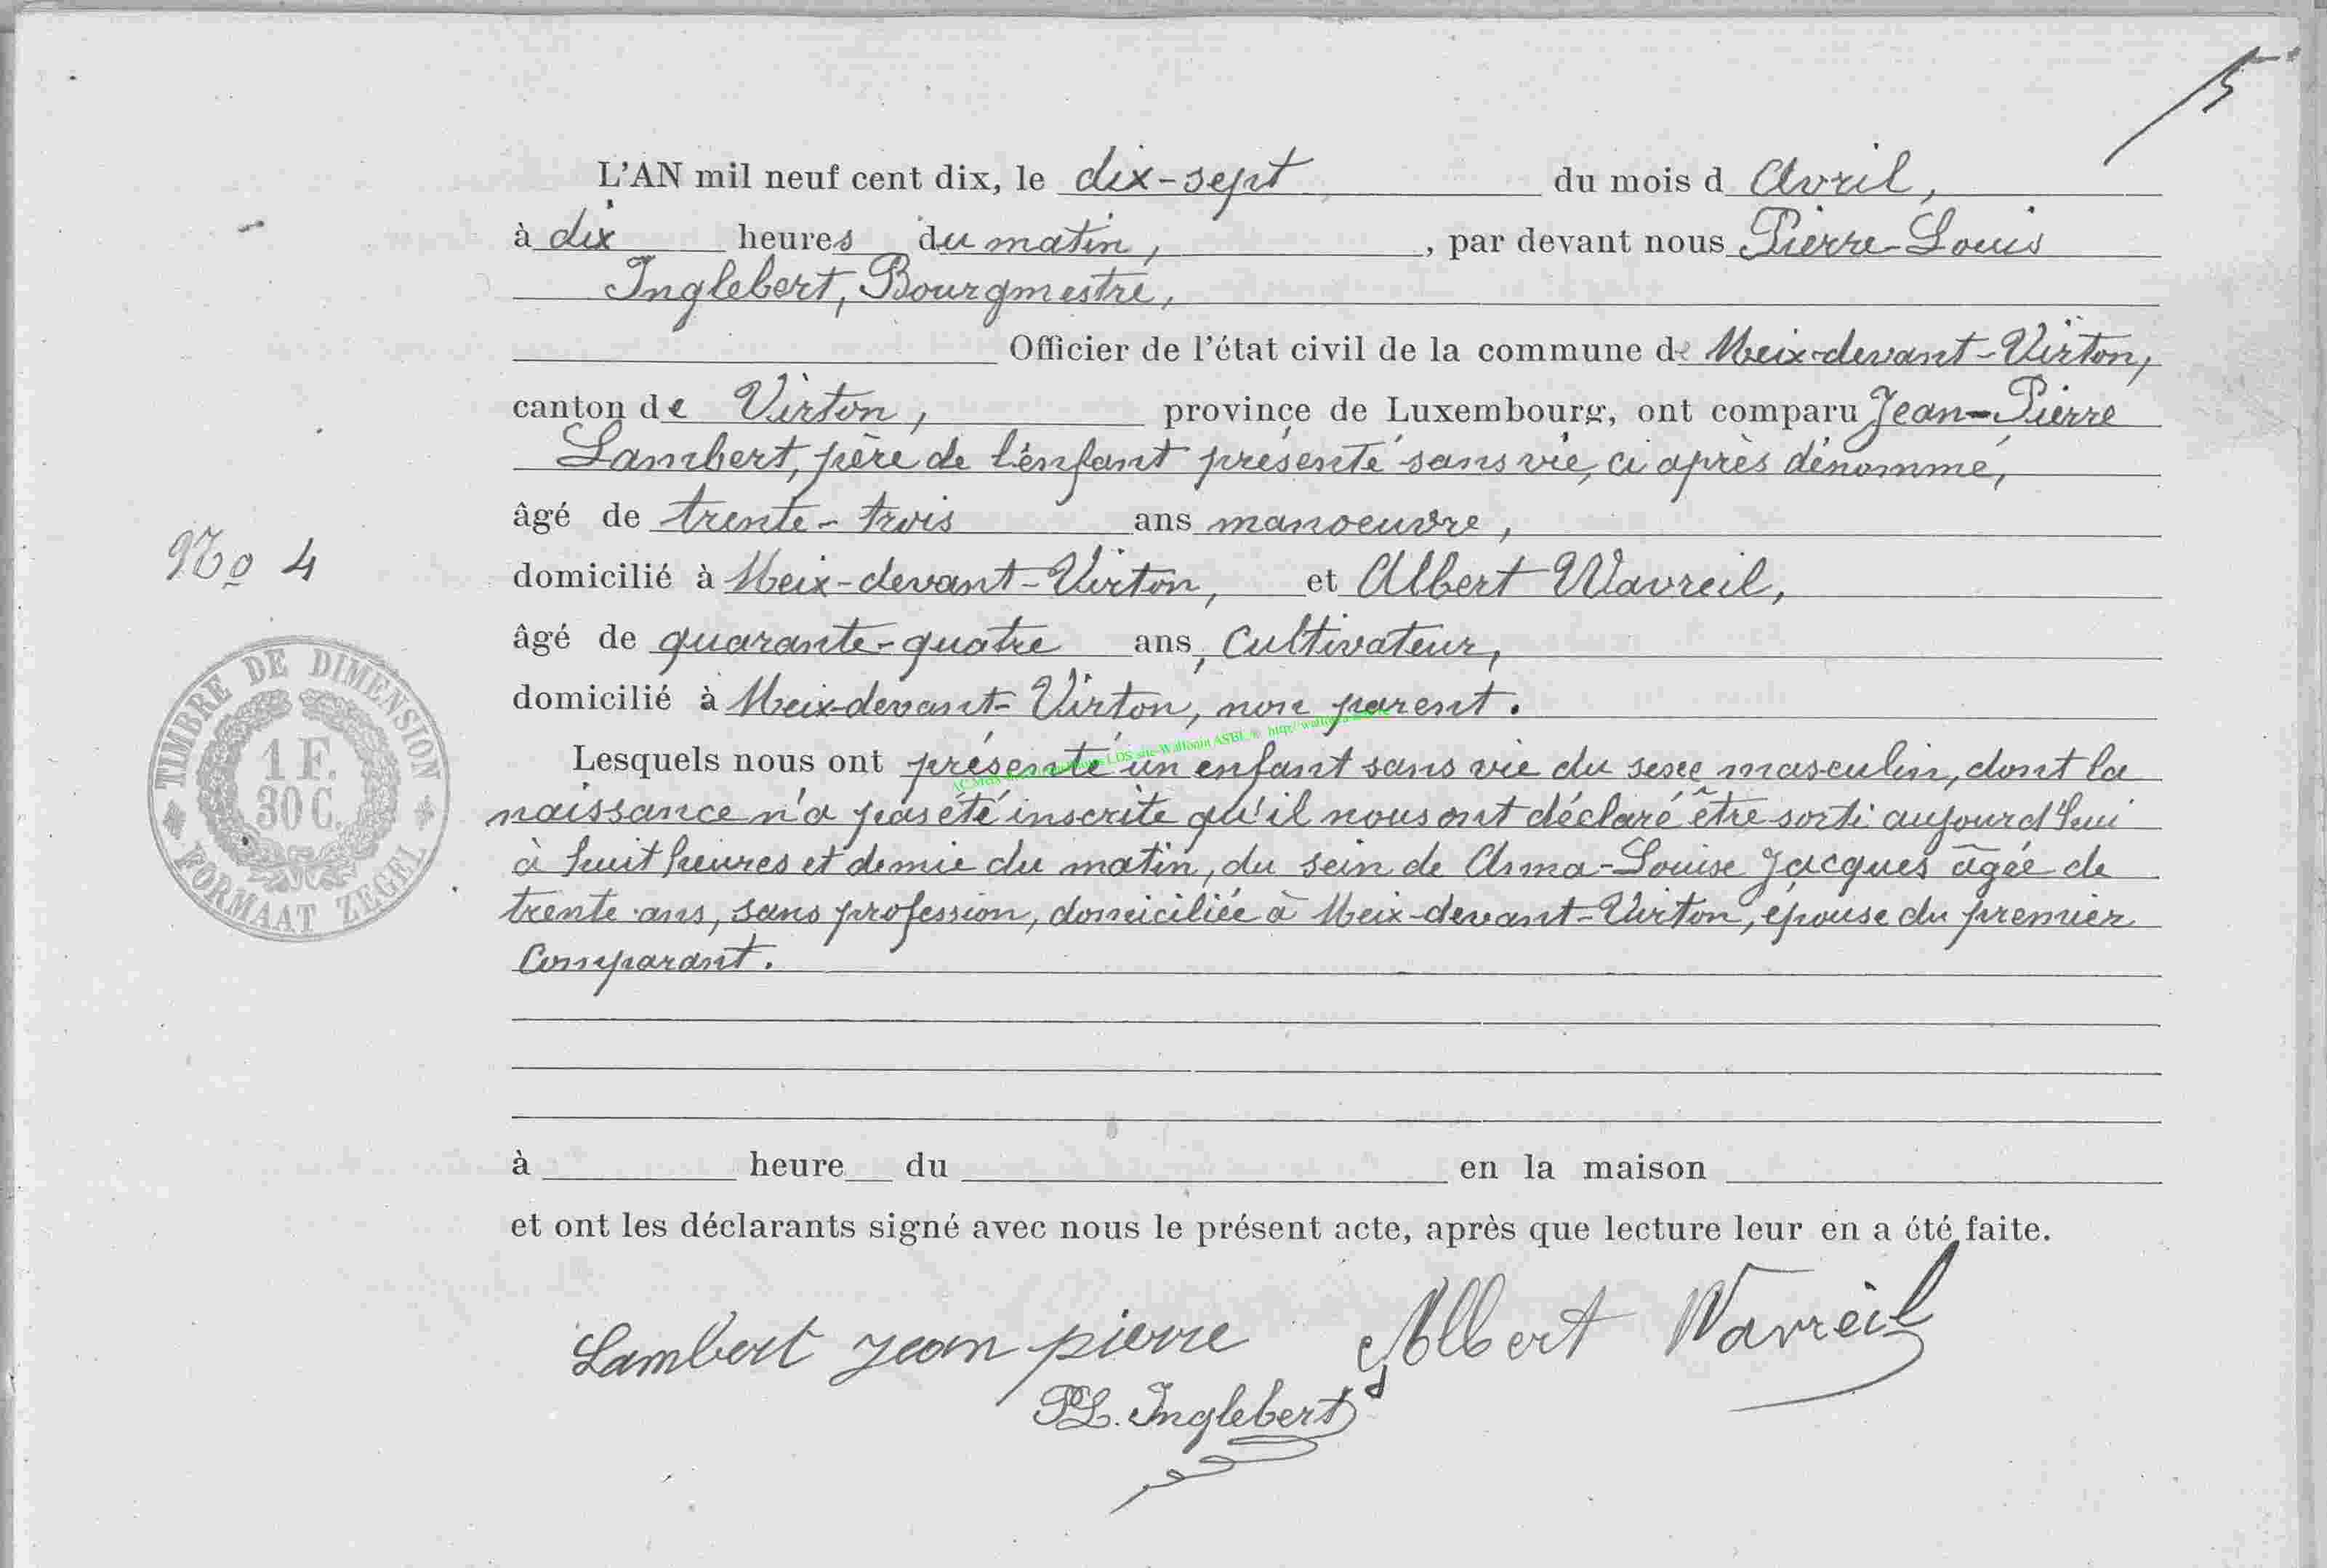 5
L'AN mil neuf cent dix, le dix-sept du mois d Avril,
à dix heures du matin, , par devant nous Pierre-Louis
Inglebert, Bourgmestre,
Officier de l'état civil de la commune de Meix-devant-Virton,
canton de Virton, province de Luxembourg, ont comparu Jean-Pierre
Lambert, père de l'enfant présenté sans vie, ci après dénommé,
âgé de trente-trois ans manoeuvre,
No 4
domicilié à Meix-devant-Virton, et Albert Wavreil,
âgé de quarante-quatre ans, Cultivateur,
domicilié à Meix-devant-Virton, non parent.
TIMBRE DE DIMENSION
1 F.
30 C.
FORMAAT ZEGEL
Lesquels nous ont présenté un enfant sans vie du sexe masculin, dont la
naissance n'a pas été inscrite qu'il nous ont déclaré être sorti aujourd'hui
à huit heures et demie du matin, du sein de Anna-Louise Jacques âgée de
trente ans, sans profession, domiciliée à Meix-devant-Virton, épouse du premier
Comparant.
à heure du en la maison
et ont les déclarants signé avec nous le présent acte, après que lecture leur en a été faite.
Lambert jean pierre Albert Wavreil
PL. Inglebert